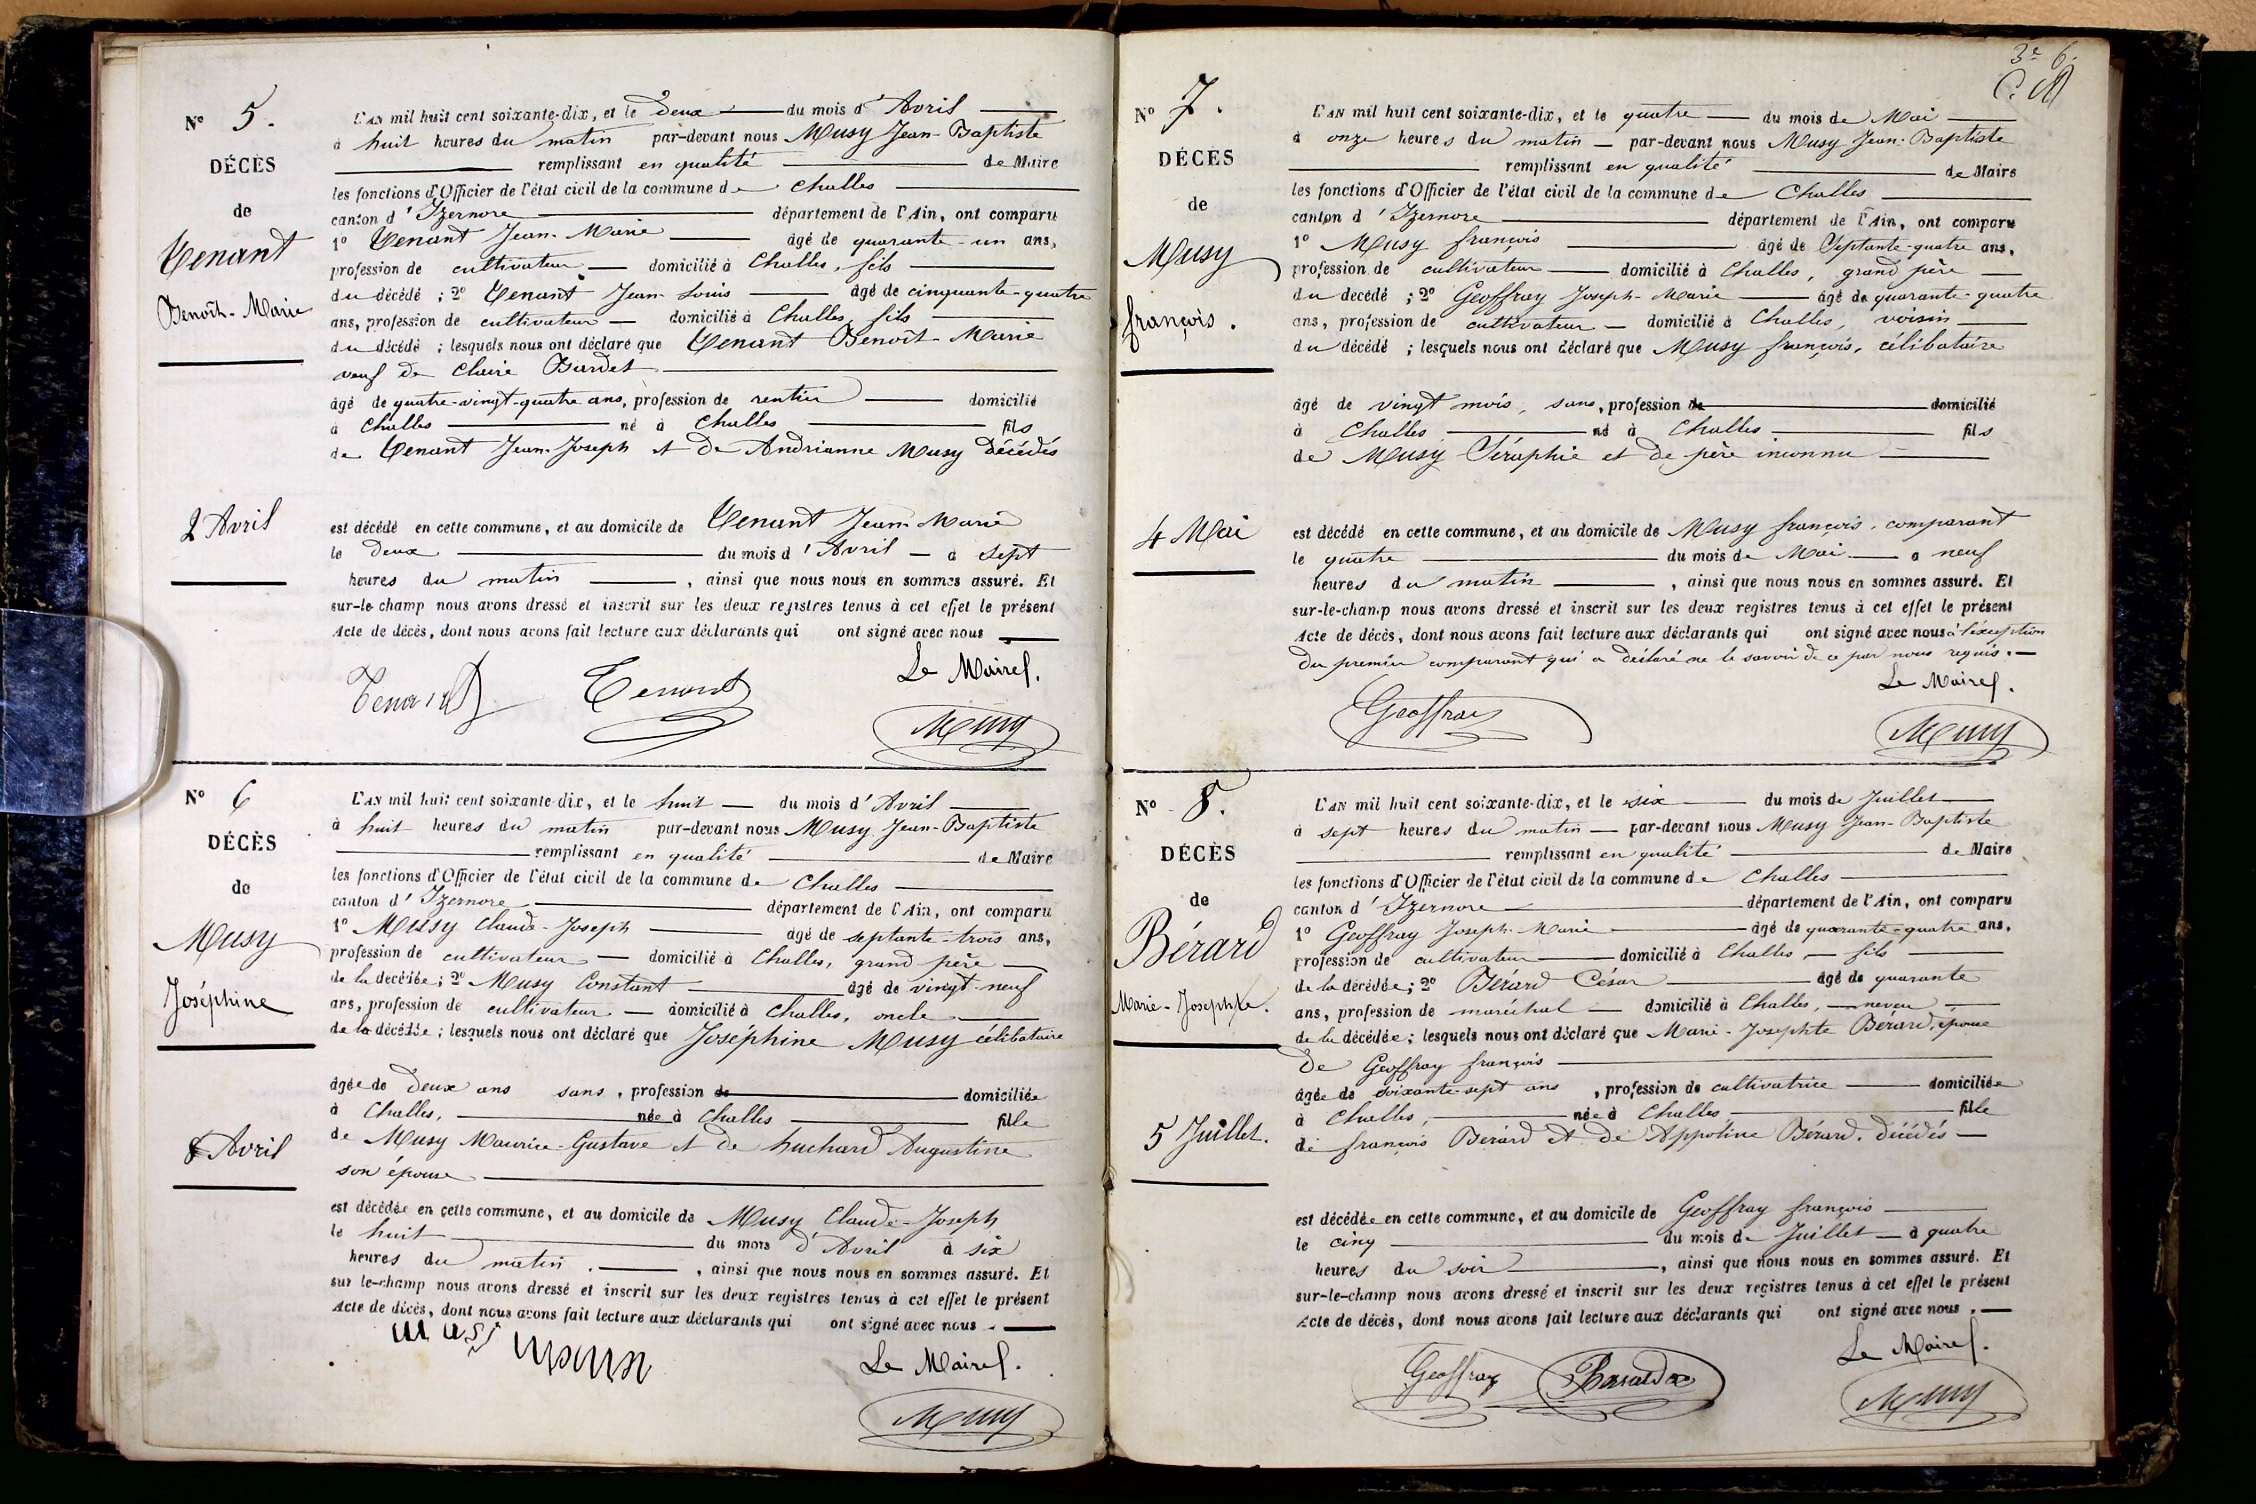 N° 5.
DÉCÈS
de
Tenant
Benoît-Marie
2 Avril
L'AN mil huit cent soixante-dix, et le deux du mois d'Avril
à huit heures du matin par-devant nous Musy Jean-Baptiste
remplissant en qualité de Maire
les fonctions d'Officier de l'état civil de la commune de Challes
canton d'Izernore département de l'Ain, ont comparu
1° Tenant Jean-Marie âgé de quarante-un ans,
profession de cultivateur domicilié à Challes, fils
du décédé ; 2° Tenant Jean-Louis âgé de cinquante-quatre
ans, profession de cultivateur domicilié à Challes, fils
du décédé ; lesquels nous ont déclaré que Tenant Benoît-Marie
veuf de Claire Burdet
âgé de quatre-vingt-quatre ans, profession de rentier domicilié
à Challes né à Challes fils
de Tenant Jean-Joseph et de Andrianne Musy décédés
est décédé en cette commune, et au domicile de Tenant Jean-Marie
le deux du mois d'Avril à sept
heures du matin, ainsi que nous nous en sommes assuré. Et
sur-le-champ nous avons dressé et inscrit sur les deux registres tenus à cet effet le présent
Acte de décès, dont nous avons fait lecture aux déclarants qui ont signé avec nous
Le Maire.
Tenant Tenant
Musy
N° 6
DÉCÈS
de
Musy
Joséphine
8 Avril
L'AN mil huit cent soixante-dix, et le huit du mois d'Avril
à huit heures du matin par-devant nous Musy Jean-Baptiste
remplissant en qualité de Maire
les fonctions d'Officier de l'état civil de la commune de Challes
canton d'Izernore département de l'Ain, ont comparu
1° Musy Claude-Joseph âgé de septante-trois ans,
profession de cultivateur domicilié à Challes, grand père
de la décédée ; 2° Musy Constant âgé de vingt-neuf
ans, profession de cultivateur domicilié à Challes, oncle
de la décédée ; lesquels nous ont déclaré que Joséphine Musy célibataire
âgée de deux ans sans, profession de domiciliée
à Challes, née à Challes fille
de Musy Maurice-Gustave et de Luchard Augustine
son épouse
est décédée en cette commune, et au domicile de Musy Claude-Joseph
le huit du mois d'Avril à six
heures du matin, ainsi que nous nous en sommes assuré. Et
sur-le-champ nous avons dressé et inscrit sur les deux registres tenus à cet effet le présent
Acte de décès, dont nous avons fait lecture aux déclarants qui ont signé avec nous.
Le Maire.
Musy
3e 6.
N° 7.
DÉCÈS
de
Musy
françois.
4 Mai
L'AN mil huit cent soixante-dix, et le quatre du mois de Mai
à onze heures du matin par-devant nous Musy Jean-Baptiste
remplissant en qualité de Maire
les fonctions d'Officier de l'état civil de la commune de Challes
canton d'Izernore département de l'Ain, ont comparu
1° Musy françois âgé de Septante-quatre ans,
profession de cultivateur domicilié à Challes, grand père
du décédé ; 2° Geoffray Joseph-Marie âgé de quarante-quatre
ans, profession de cultivateur domicilié à Challes, voisin
du décédé ; lesquels nous ont déclaré que Musy françois, célibataire
âgé de vingt mois, sans, profession de domicilié
à Challes né à Challes fils
de Musy Séraphie et de père inconnu
est décédé en cette commune, et au domicile de Musy françois, comparant
le quatre du mois de Mai à neuf
heures du matin, ainsi que nous nous en sommes assuré. Et
sur-le-champ nous avons dressé et inscrit sur les deux registres tenus à cet effet le présent
Acte de décès, dont nous avons fait lecture aux déclarants qui ont signé avec nous à l'exception
du premier comparant qui a déclaré ne le savoir de ce par nous requis.
Le Maire.
Geoffray
Musy
N° 8.
DÉCÈS
de
Bérard
Marie-Josephte.
5 Juillet.
L'AN mil huit cent soixante-dix, et le six du mois de Juillet
à sept heures du matin par-devant nous Musy Jean-Baptiste
remplissant en qualité de Maire
les fonctions d'Officier de l'état civil de la commune de Challes
canton d'Izernore département de l'Ain, ont comparu
1° Geoffray Joseph-Marie âgé de quarante-quatre ans,
profession de cultivateur domicilié à Challes fils
de la décédée ; 2° Bérard César âgé de quarante
ans, profession de maréchal domicilié à Challes, neveu
de la décédée ; lesquels nous ont déclaré que Marie-Josephte Bérard, épouse
de Geoffray françois
âgée de soixante-sept ans, profession de cultivatrice domiciliée
à Challes, née à Challes fille
de françois Bérard et de Appoline Bérard, décédés
est décédée en cette commune, et au domicile de Geoffray françois
le cinq du mois de Juillet à quatre
heures du soir, ainsi que nous nous en sommes assuré. Et
sur-le-champ nous avons dressé et inscrit sur les deux registres tenus à cet effet le présent
Acte de décès, dont nous avons fait lecture aux déclarants qui ont signé avec nous.
Le Maire.
Geoffray
Musy